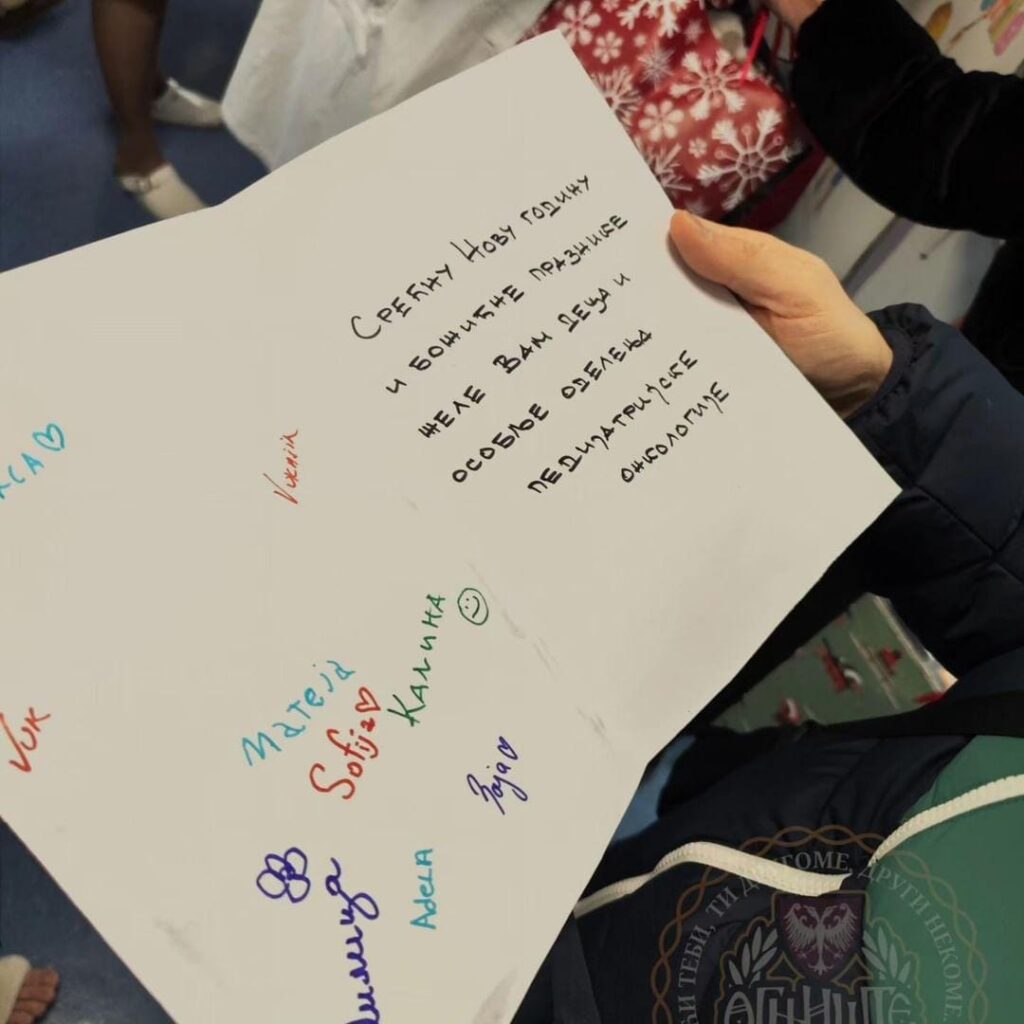 СРЕЋНУ НОВУ ГОДИНУ
И БОЖИЋНЕ ПРАЗНИКЕ
ЖЕЛЕ ВАМ ДЕЦА И
ОСОБЉЕ ОДЕЛЕЊА
ПЕДИЈАТРИЈСКЕ
ОНКОЛОГИЈЕ
Матеја
Sofija
КАЛИНА
Vuk
Adela
ТЕБИ, ТИ ДРУГОМЕ, ДРУГИ НЕКОМЕ,